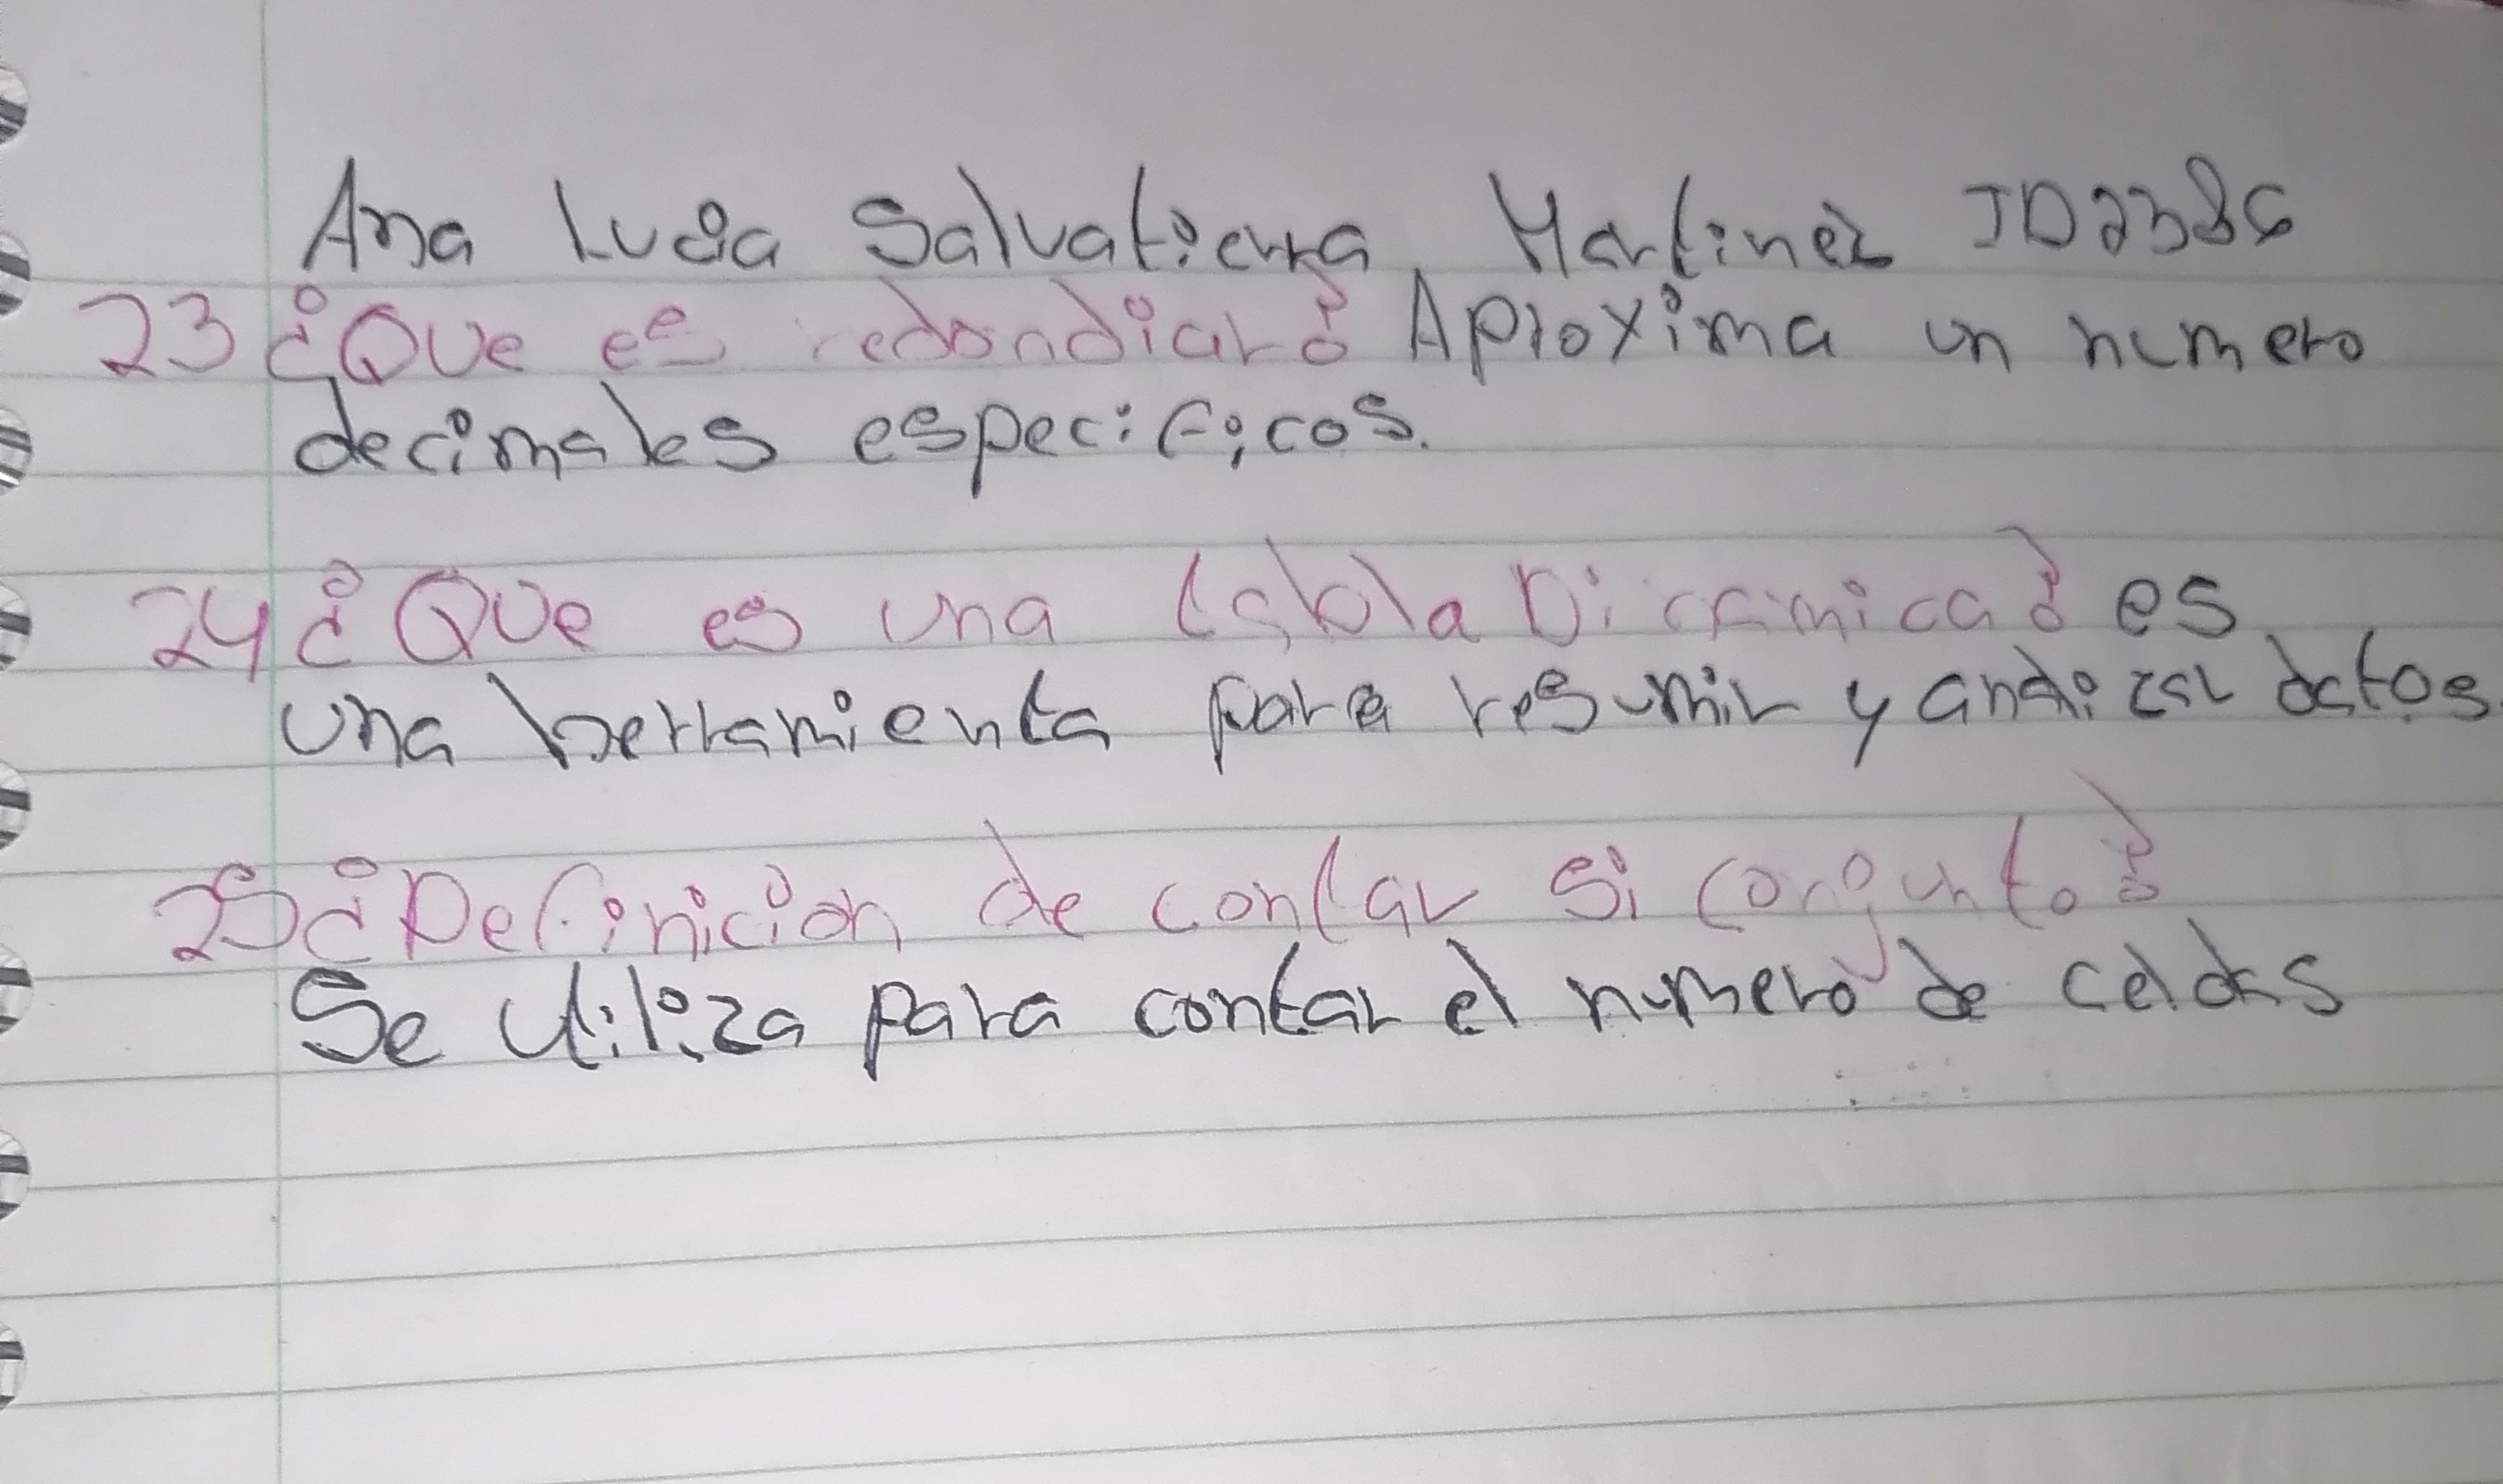 Ana Lucia Salvatierra Martinez JD2386
23 ¿Que es redondiar? Aproxima un numero
decimales especificos.
24 ¿Que es una tabla Dinamica? es
una herramienta para resumir y analizar datos.
25 ¿Definicion de contar si conjunto?
Se Utiliza para contar el numero de celdas